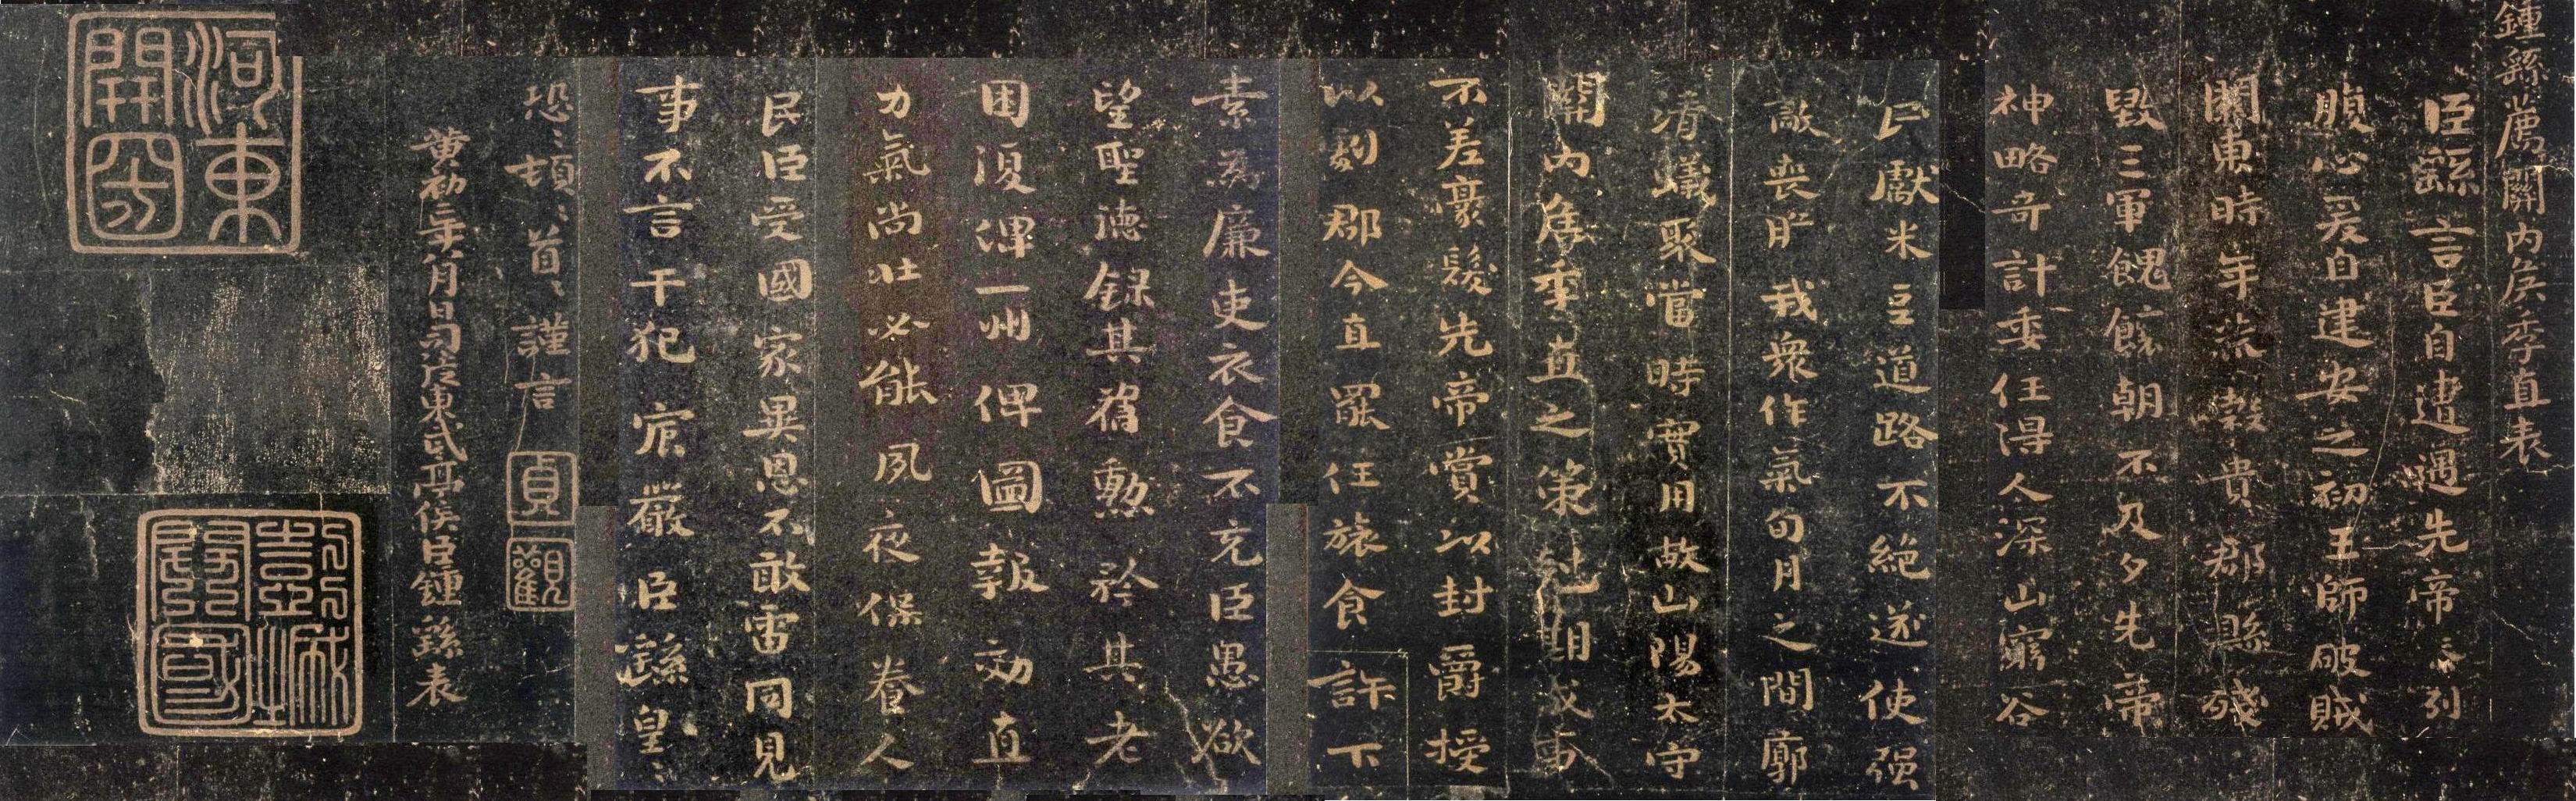 鍾繇薦關內侯季直表
臣繇言臣自遭遇先帝忝列
腹心爰自建安之初王師破賊
關東時年荒穀貴郡縣殘
毀三軍餽饟朝不及夕先帝
神略奇計委任得人深山窮谷
民獻米豆道路不絕遂使強
敵喪膽我衆作氣旬月之間廓
清蟻聚當時實用故山陽太守
關內侯季直之策剋期成事
不差豪髮先帝賞以封爵授
以劇郡今直罷任旅食許下
素為廉吏衣食不充臣愚欲
望聖德錄其舊勳矜其老
困復俾一州俾圖報効直
力氣尚壯必能夙夜保養人
民臣受國家異恩不敢雷同見
事不言干犯宸嚴臣繇皇〻
恐〻頓〻首〻謹言
貞
觀
黃初二年八月日司徒東武亭侯臣鍾繇表
河東
開國